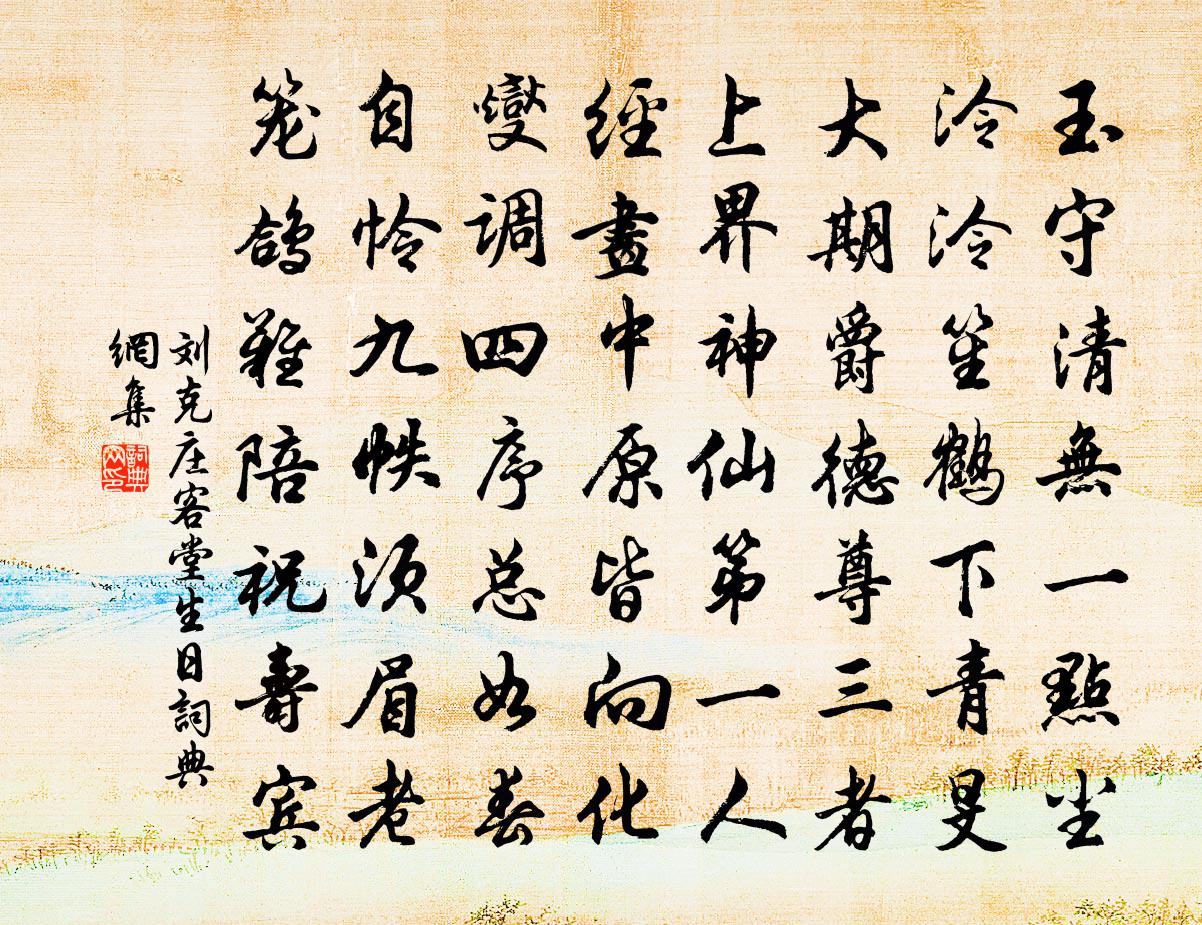 玉守清無一點尘
泠泠笙鶴下青旻
大期爵德尊三者
上界神仙第一人
經畫中原皆向化
燮調四序总如春
自怜九帙须眉老
笼鸽難陪祝壽宾
刘克庄客堂生日詞典
網集
詞典
网印